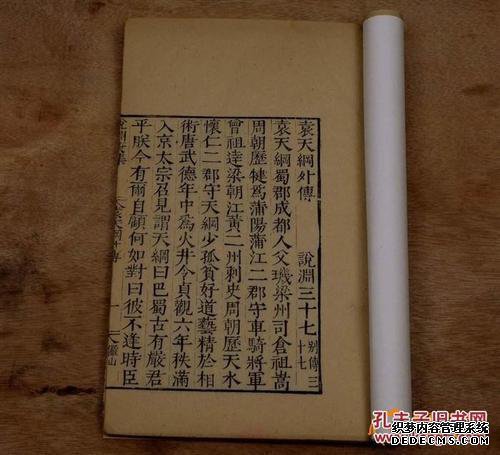 袁天綱外傳 說淵三十七 别傳三十七
袁天綱蜀郡成都人父璣梁州司倉祖嵩
周朝歷犍爲蒲陽蒲江二郡守車騎將軍
曾祖逹梁朝江黃二州刺史周朝歷天水
懷仁二郡守天綱少孤貧好道藝精於相
術唐武德年中爲火井令貞觀六年秩滿
入京太宗召見謂天綱曰巴蜀古有嚴君
平朕今有爾自顧何如對曰彼不逢時臣
孔夫子旧书网
织梦内容管理系统